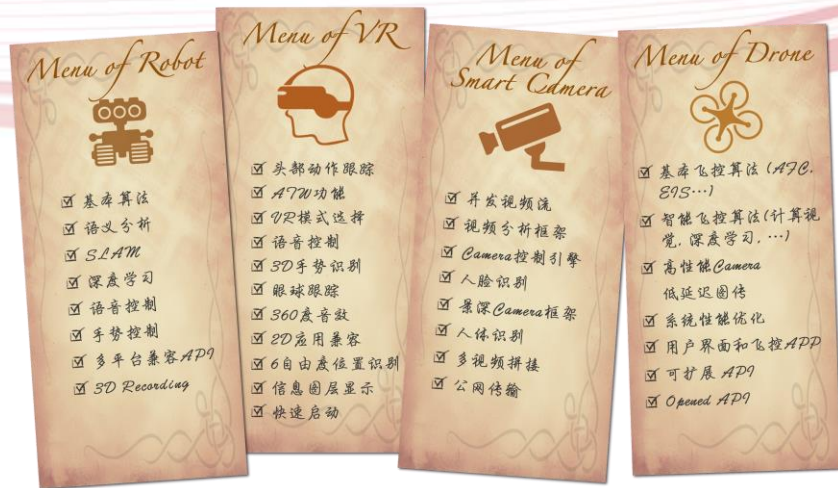 Menu of Robot
基本算法
语义分析
SLAM
深度学习
语音控制
手势控制
多平台兼容API
3D Recording
Menu of VR
头部动作跟踪
ATW功能
VR模式选择
语音控制
3D手势识别
眼球跟踪
360度音效
2D应用兼容
6自由度位置识别
信息图层显示
快速启动
Menu of
Smart Camera
并发视频流
视频分析框架
Camera控制引擎
人脸识别
景深Camera框架
人体识别
多视频拼接
公网传输
Menu of Drone
基本飞控算法(AFC,
EIS…)
智能飞控算法(计算视
觉, 深度学习, …)
高性能Camera
低延迟图传
系统性能优化
用户界面和飞控APP
可扩展 API
Opened API